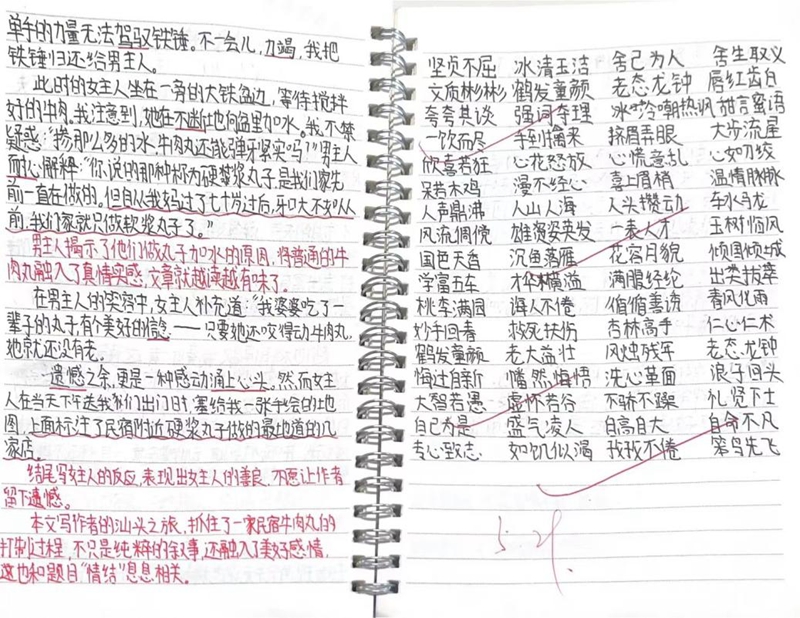 单手的力量无法驾驭铁锤。不一会儿,力竭,我把
铁锤归还给男主人。
此时的女主人坐在一旁的大铁盆边,等待搅拌
好的牛肉。我注意到,她在不断地向盆里加水。我不禁
疑惑:"掺那么多的水,牛肉丸还能弹牙紧实吗?"男主人
而心解释:"你说的那种称为硬浆丸子,是我们家先
前一直在做的,但自从我妈过了七十岁过后,牙口大不如从
前,我们家就只做软浆丸子了。"
男主人揭示了他们做丸子加水的原因,将普通的牛
肉丸融入了真情实感,文章就越读越有味了。
在男主人的笑容中,女主人补充道:"我婆婆吃了一
辈子的丸子,有个美好的信念——只要她还咬得动牛肉丸,
她就还没有老。
遗憾之余,更是一种感动涌上心头。然而女主
人在当天下午送我们出门时,塞给我一张手绘的地
图,上面标注了民宿附近硬浆丸子做的最地道的几
家店。
结尾写女主人的反应,表现出女主人的善良,不愿让作者
留下遗憾。
本文写作者的汕头之旅,抓住了一家民宿牛肉丸的
打制过程,不只是纯粹的叙事,还融入了美好感情,
这也和题目"情结"息息相关。
坚贞不屈 冰清玉洁 舍己为人 舍生取义
文质彬彬 鹤发童颜 老态龙钟 唇红齿白
夸夸其谈 强词夺理 冷嘲热讽 甜言蜜语
一饮而尽 手到擒来 挤眉弄眼 大步流星
欣喜若狂 心花怒放 心慌意乱 心如刀绞
呆若木鸡 漫不经心 喜上眉梢 温情脉脉
人声鼎沸 人山人海 人头攒动 车水马龙
风流倜傥 雄姿英发 一表人才 玉树临风
国色天香 沉鱼落雁 花容月貌 倾国倾城
学富五车 才华横溢 满腹经纶 出类拔萃
桃李满园 诲人不倦 循循善诱 春风化雨
妙手回春 救死扶伤 杏林高手 仁心仁术
鹤发童颜 老大益壮 风烛残年 老态龙钟
悔过自新 幡然悔悟 洗心革面 浪子回头
大智若愚 虚怀若谷 不骄不躁 礼贤下士
自己为是 盛气凌人 自高自大 自命不凡
专心致志 如饥似渴 孜孜不倦 笨鸟先飞
5.29.